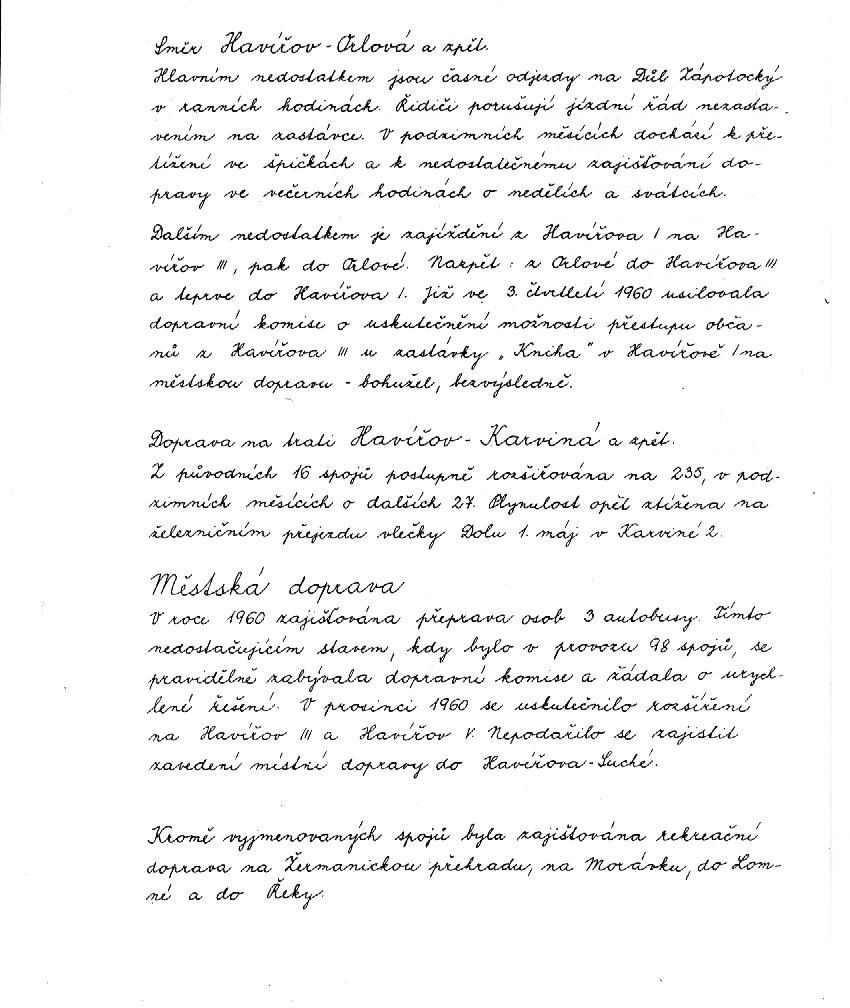 Směr Havířov - Orlová a zpět.
Hlavním nedostatkem jsou časné odjezdy na Důl Zápotocký
v ranních hodinách. Řidiči porušují jízdní řád nezasta-
vením na zastávce. V podzimních měsících dochází k pře-
tížení ve špičkách a k nedostatečnému zajišťování do-
pravy ve večerních hodinách o nedělích a svátcích.
Dalším nedostatkem je zajíždění z Havířova I na Ha-
vířov III, pak do Orlové. Nazpět: z Orlové do Havířova III
a teprve do Havířova I. Již ve 3. čtvrtletí 1960 usilovala
dopravní komise o uskutečnění možnosti přestupu obča-
nů z Havířova III u zastávky „Kniha" v Havířově I na
městskou dopravu - bohužel, bezvýsledně.
Doprava na trati Havířov - Karviná a zpět.
Z původních 16 spojů postupně rozšiřována na 235, v pod-
zimních měsících o dalších 27. Plynulost opět ztížena na
železničním přejezdu vlečky Dolu 1. máj v Karviné 2.
Městská doprava
V roce 1960 zajišťována přeprava osob 3 autobusy. Tímto
nedostačujícím stavem, kdy bylo v provozu 98 spojů, se
pravidělně zabývala dopravní komise a žádala o urych-
lené řešení. V prosinci 1960 se uskutečnilo rozšíření
na Havířov III a Havířov V. Nepodařilo se zajistit
zavedení místní dopravy do Havířova-Suché.
Kromě vyjmenovaných spojů byla zajišťována rekreační
doprava na Žermanickou přehradu, na Morávku, do Lom-
né a do Řeky.